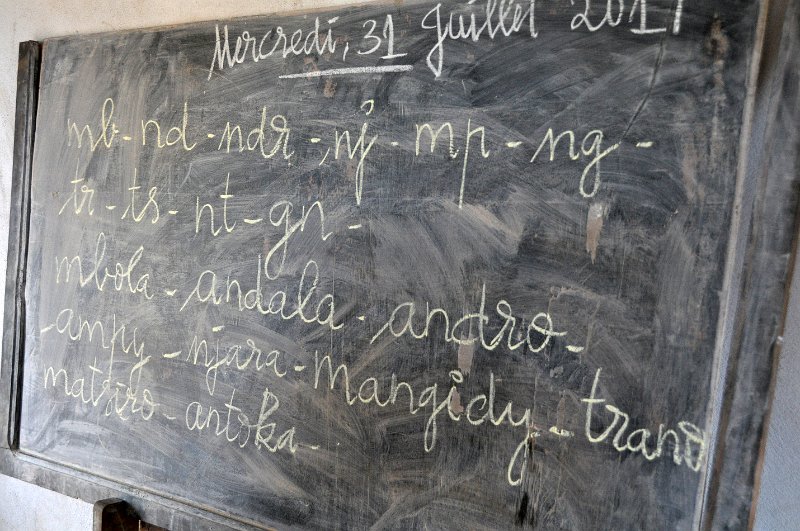 Mercredi, 31 Juillet 2017
mb - nd - ndr - nj - mp - ng -
tr - ts - nt - gn -
mbola - andala - andro -
ampy - njara - mangidy - trano
matsiro - antoka -